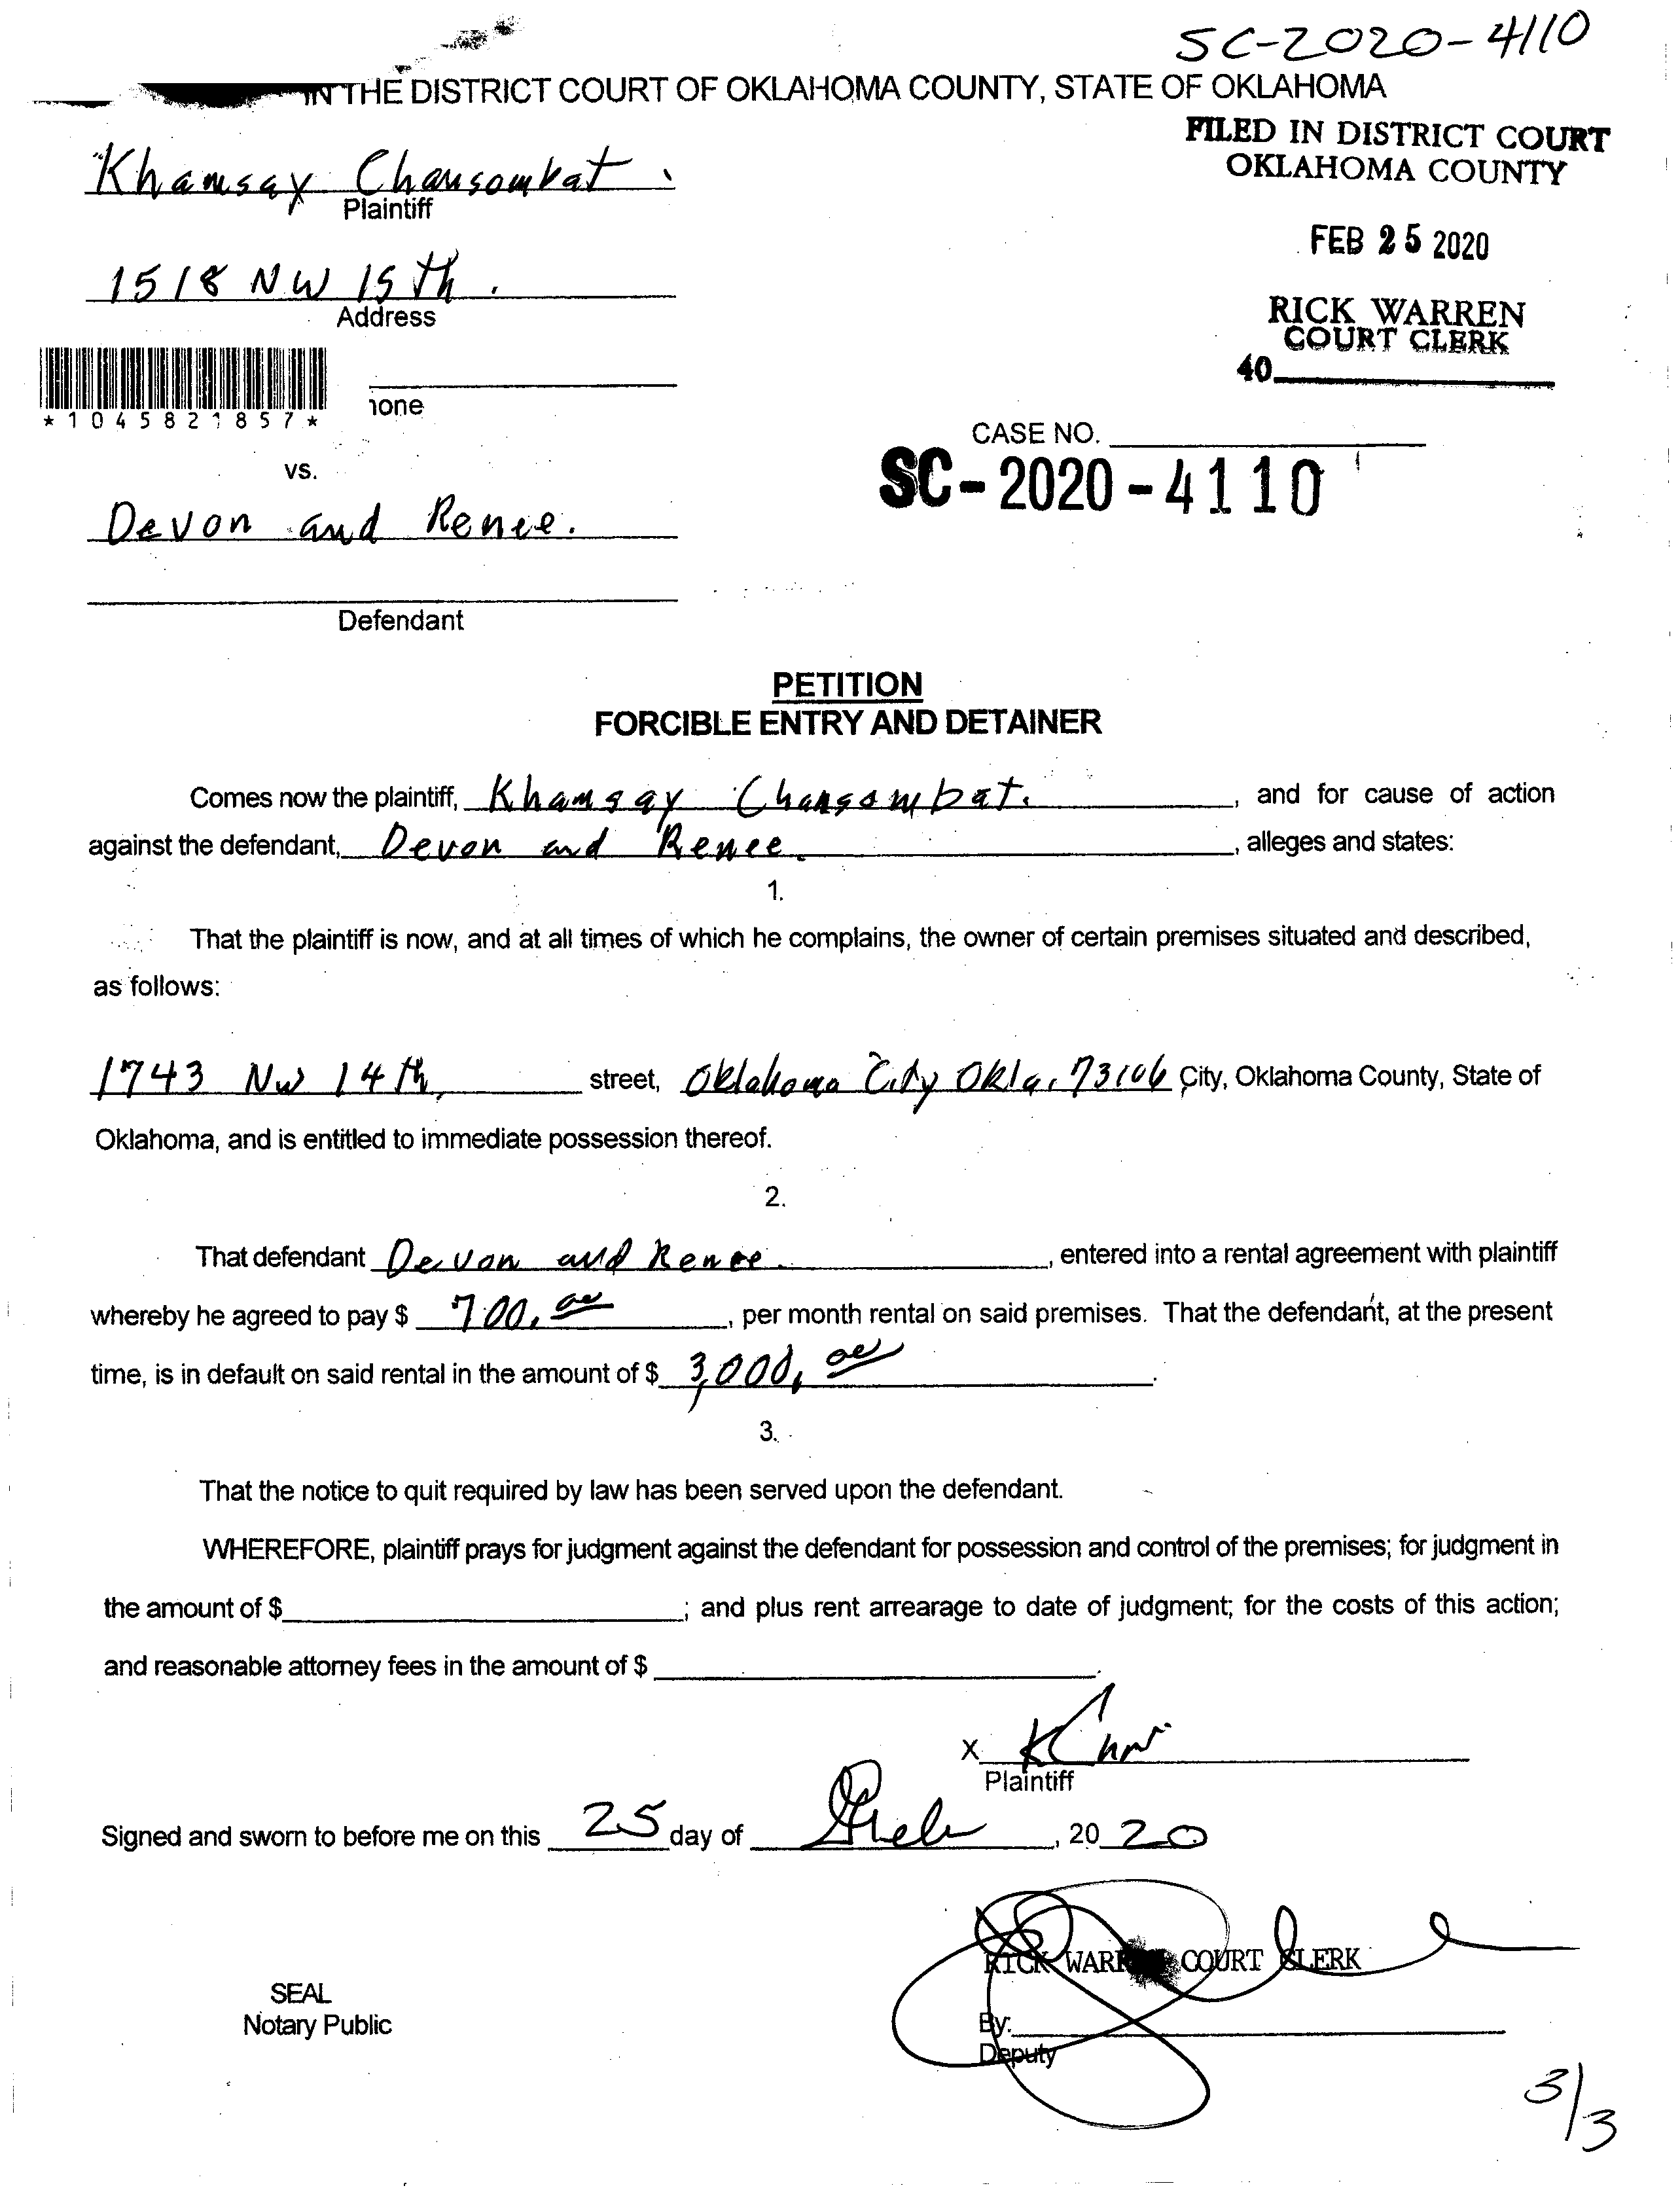 SC-2020-4110
IN THE DISTRICT COURT OF OKLAHOMA COUNTY, STATE OF OKLAHOMA
FILED IN DISTRICT COURT
OKLAHOMA COUNTY
Khamsay Chansombat.
Plaintiff
FEB 25 2020
1518 NW 15th.
Address
RICK WARREN
COURT CLERK
40
hone
*1045821857*
CASE NO.
SC-2020-4110
vs.
Devon and Renee.
Defendant
PETITION
FORCIBLE ENTRY AND DETAINER
Comes now the plaintiff, Khamsay Chansombat., and for cause of action
against the defendant, Devon and Renee., alleges and states:
1.
That the plaintiff is now, and at all times of which he complains, the owner of certain premises situated and described,
as follows:
1743 NW 14th, street, Oklahoma City Okla. 73106 City, Oklahoma County, State of
Oklahoma, and is entitled to immediate possession thereof.
2.
That defendant Devon and Renee., entered into a rental agreement with plaintiff
whereby he agreed to pay $ 700.00, per month rental on said premises. That the defendant, at the present
time, is in default on said rental in the amount of $ 3,000.00.
3.
That the notice to quit required by law has been served upon the defendant.
WHEREFORE, plaintiff prays for judgment against the defendant for possession and control of the premises; for judgment in
the amount of $; and plus rent arrearage to date of judgment; for the costs of this action;
and reasonable attorney fees in the amount of $.
X
Plaintiff
Signed and sworn to before me on this 25 day of Feb, 2020
RICK WARREN COURT CLERK
SEAL
Notary Public
By:
Deputy
3/3